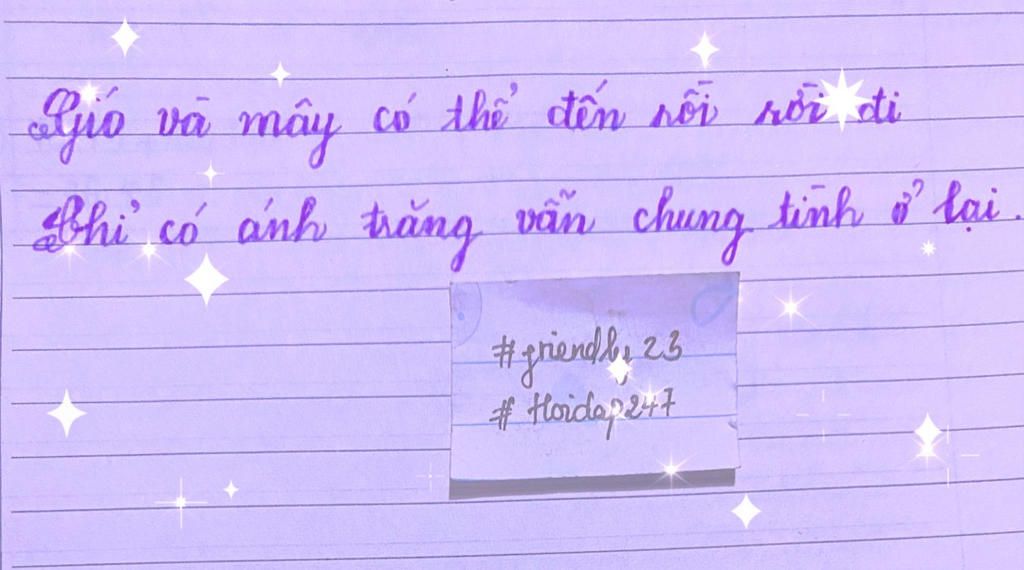 Gió và mây có thể đến rồi rời đi
Chỉ có ánh trăng vẫn chung tình ở lại.
#friendly23
# Hoidap247